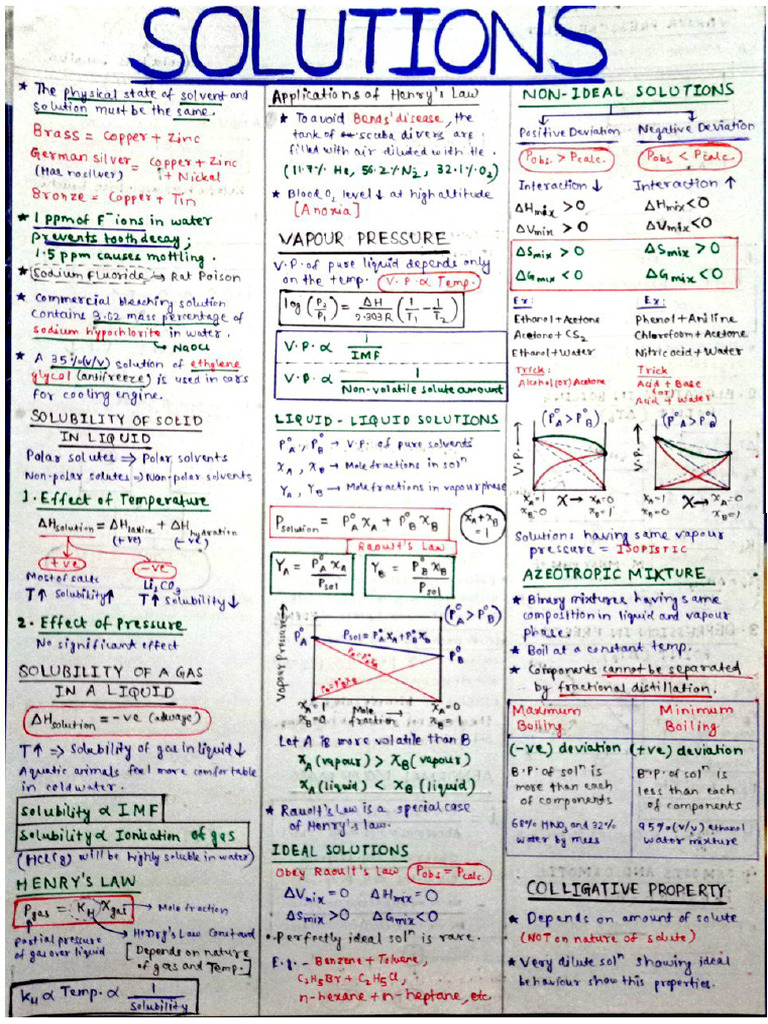 SOLUTIONS
★ The physical state of solvent and
solution must be the same.
Brass = Copper + Zinc
German silver = Copper + Zinc
(Has no silver) + Nickel
Bronze = Copper + Tin
★ 1 ppm of F⁻ ions in water
prevents tooth decay;
1.5 ppm causes mottling.
★ Sodium Fluoride → Rat Poison
★ commercial bleaching solution
contains 3.62 mass percentage of
sodium hypochlorite in water.
→ NaOCl
★ A 35% (v/v) solution of ethylene
glycol (antifreeze) is used in cars
for cooling engine.
SOLUBILITY OF SOLID
IN LIQUID
Polar solutes ⇒ Polar solvents
Non-polar solutes ⇒ Non-polar solvents
1. Effect of Temperature
ΔH solution = ΔH lattice + ΔH hydration
(+ve) (-ve)
+ve -ve
Most of salts Li₂CO₃
T↑ Solubility↑ T↑ Solubility↓
2. Effect of Pressure
No significant effect
SOLUBILITY OF A GAS
IN A LIQUID
ΔH solution = -ve (always)
T↑ ⇒ Solubility of gas in liquid ↓
Aquatic animals feel more comfortable
in cold water.
Solubility ∝ IMF
Solubility ∝ Ionisation of gas
(HCl(g) will be highly soluble in water)
HENRY'S LAW
P gas = K_H X gas → Mole fraction
Partial pressure
of gas over liquid
→ Henry's Law Constant
[Depends on nature
of gas and Temp.]
K_H ∝ Temp. ∝ 1/Solubility
Applications of Henry's Law
★ To avoid Bends' disease, the
tank of scuba divers are
filled with air diluted with He.
(11.7% He, 56.2% N₂, 32.1% O₂)
★ Blood O₂ level ↓ at high altitude
[Anoxia]
VAPOUR PRESSURE
V.P. of pure liquid depends only
on the temp. (V.P. ∝ Temp.)
log (P₂/P₁) = ΔH/2.303R (1/T₁ − 1/T₂)
V.P. ∝ 1/IMF
V.P. ∝ 1/Non-volatile solute amount
LIQUID - LIQUID SOLUTIONS
P°A, P°B → V.P. of pure solvents
XA, XB → Mole fractions in solⁿ
YA, YB → Mole fractions in vapour phase
P solution = P°A XA + P°B XB
XA + XB = 1
Raoult's Law
YA = P°A XA / P sol YB = P°B XB / P sol
(P°A > P°B)
Vapour Pressure →
P°A
Psol = P°A XA + P°B XB
PA = P°A XA
P°B
PB = P°B XB
XA = 1 Mole XA = 0
XB = 0 fraction XB = 1
Let A is more volatile than B
XA (vapour) > XB (vapour)
XA (liquid) < XB (liquid)
★ Raoult's Law is a special case
of Henry's law.
IDEAL SOLUTIONS
Obey Raoult's Law (P obs = P calc.)
ΔV mix = 0 ΔH mix = 0
ΔS mix > 0 ΔG mix < 0
• Perfectly ideal solⁿ is rare.
E.g. - Benzene + Toluene,
C₂H₅Br + C₂H₅Cl,
n-hexane + n-heptane, etc
NON-IDEAL SOLUTIONS
Positive Deviation Negative Deviation
P obs. > P calc. P obs < P calc.
Interaction ↓ Interaction ↑
ΔH mix > 0 ΔH mix < 0
ΔV mix > 0 ΔV mix < 0
ΔS mix > 0 ΔS mix > 0
ΔG mix < 0 ΔG mix < 0
Ex: Ex:
Ethanol + Acetone Phenol + Aniline
Acetone + CS₂ Chloroform + Acetone
Ethanol + Water Nitric acid + Water
Trick: Trick
Alcohol (or) Acetone Acid + Base
(or)
Acid + Water
(P°A > P°B) (P°A > P°B)
V.P. → V.P. →
XA = 1 X → XA = 0 XA = 1 X → XA = 0
XB = 0 XB = 1 XB = 0 XB = 1
Solutions having same vapour
pressure = ISOPISTIC
AZEOTROPIC MIXTURE
★ Binary mixtures having same
composition in liquid and vapour
phase.
★ Boil at a constant temp.
★ Components cannot be separated
by fractional distillation.
Maximum Minimum
Boiling Boiling
(-ve) deviation (+ve) deviation
B.P. of solⁿ is B.P. of solⁿ is
more than each less than each
of components of components
68% HNO₃ and 32% 95% (v/v) ethanol
water by mass water mixture
COLLIGATIVE PROPERTY
★ Depends on amount of solute
(NOT on nature of solute)
★ Very dilute solⁿ showing ideal
behaviour show this properties.